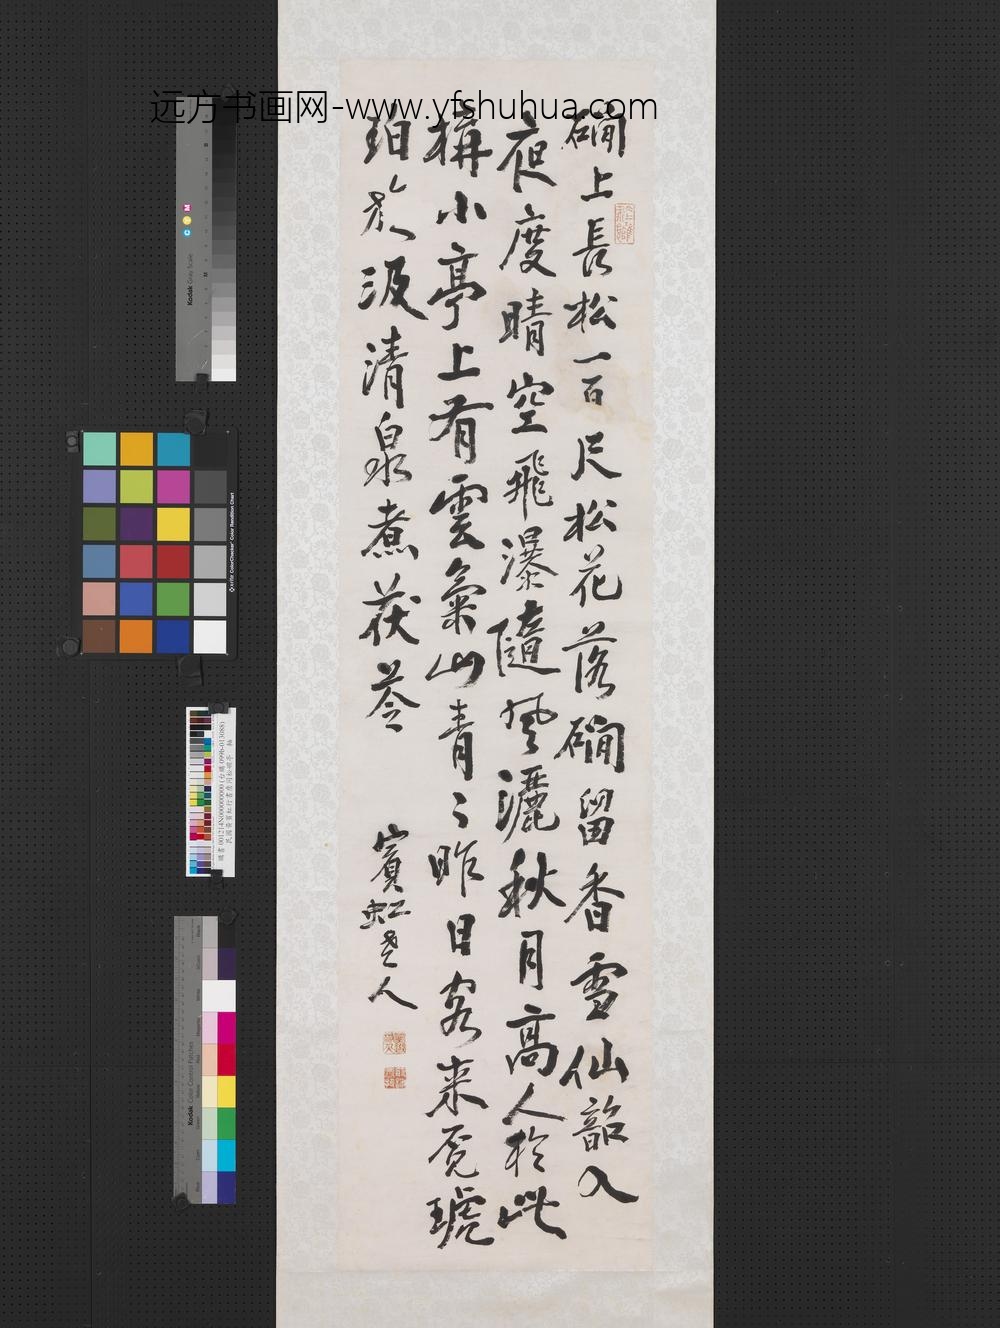 远方书画网-www.yfshuhua.com
磵上長松一百尺松花落磵留香雪仙韶入
夜度晴空飛瀑隨風灑秋月高人於此
構小亭上有雲氣山青〻昨日客來覓琥
珀欲汲清泉煮茯苓
賓虹老人
Kodak Gray Scale
C Y M
x-rite ColorChecker Color Rendition Chart
Kodak Color Control Patches